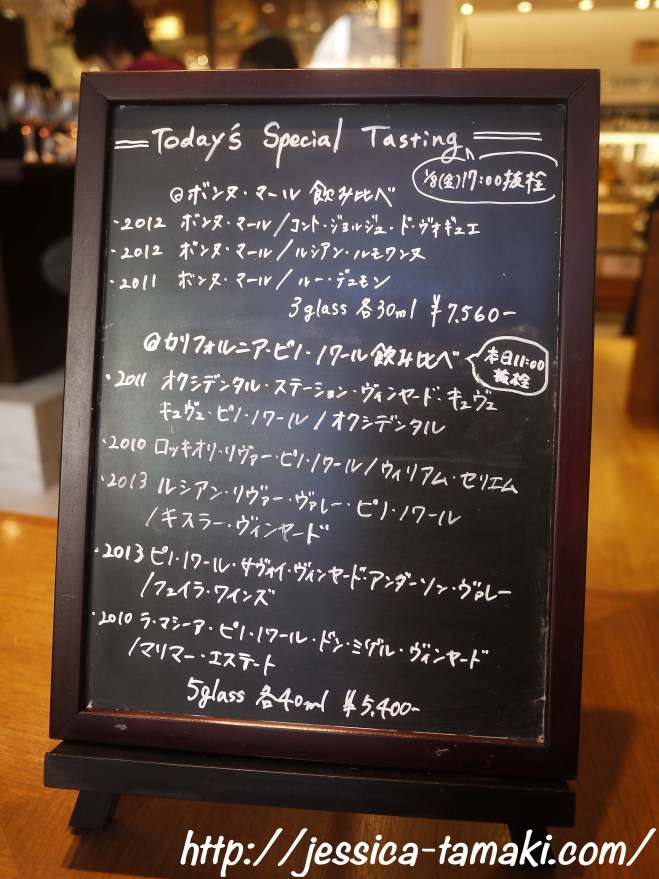 Today's Special Tasting
1/8(金)17:00抜栓
@ボンヌ・マール 飲み比べ
・2012 ボンヌ・マール/コント・ジョルジュ・ド・ヴォギュエ
・2012 ボンヌ・マール/ルシアン・ルモワンヌ
・2011 ボンヌ・マール/ルー・デュモン
3glass 各30ml ¥7,560-
@カリフォルニア・ピノ・ノワール 飲み比べ
本日11:00
抜栓
・2011 オクシデンタル・ステーション・ヴィンヤード・キュヴェ
キュヴェ・ピノ・ノワール/オクシデンタル
・2010 ロッキオリ・リヴァー・ピノ・ノワール/ウィリアム・セリエム
・2013 ルシアン・リヴァー・ヴァレー・ピノ・ノワール
/キスラー・ヴィンヤード
・2013 ピノ・ノワール・サヴォイ・ヴィンヤードアンダーソン・ヴァレー
/フェイラ・ワインズ
・2010 ラ・マシーア・ピノ・ノワール・ドン・ミゲル・ヴィンヤード
/マリマー・エステート
5glass 各40ml ¥5,400-
http://jessica-tamaki.com/